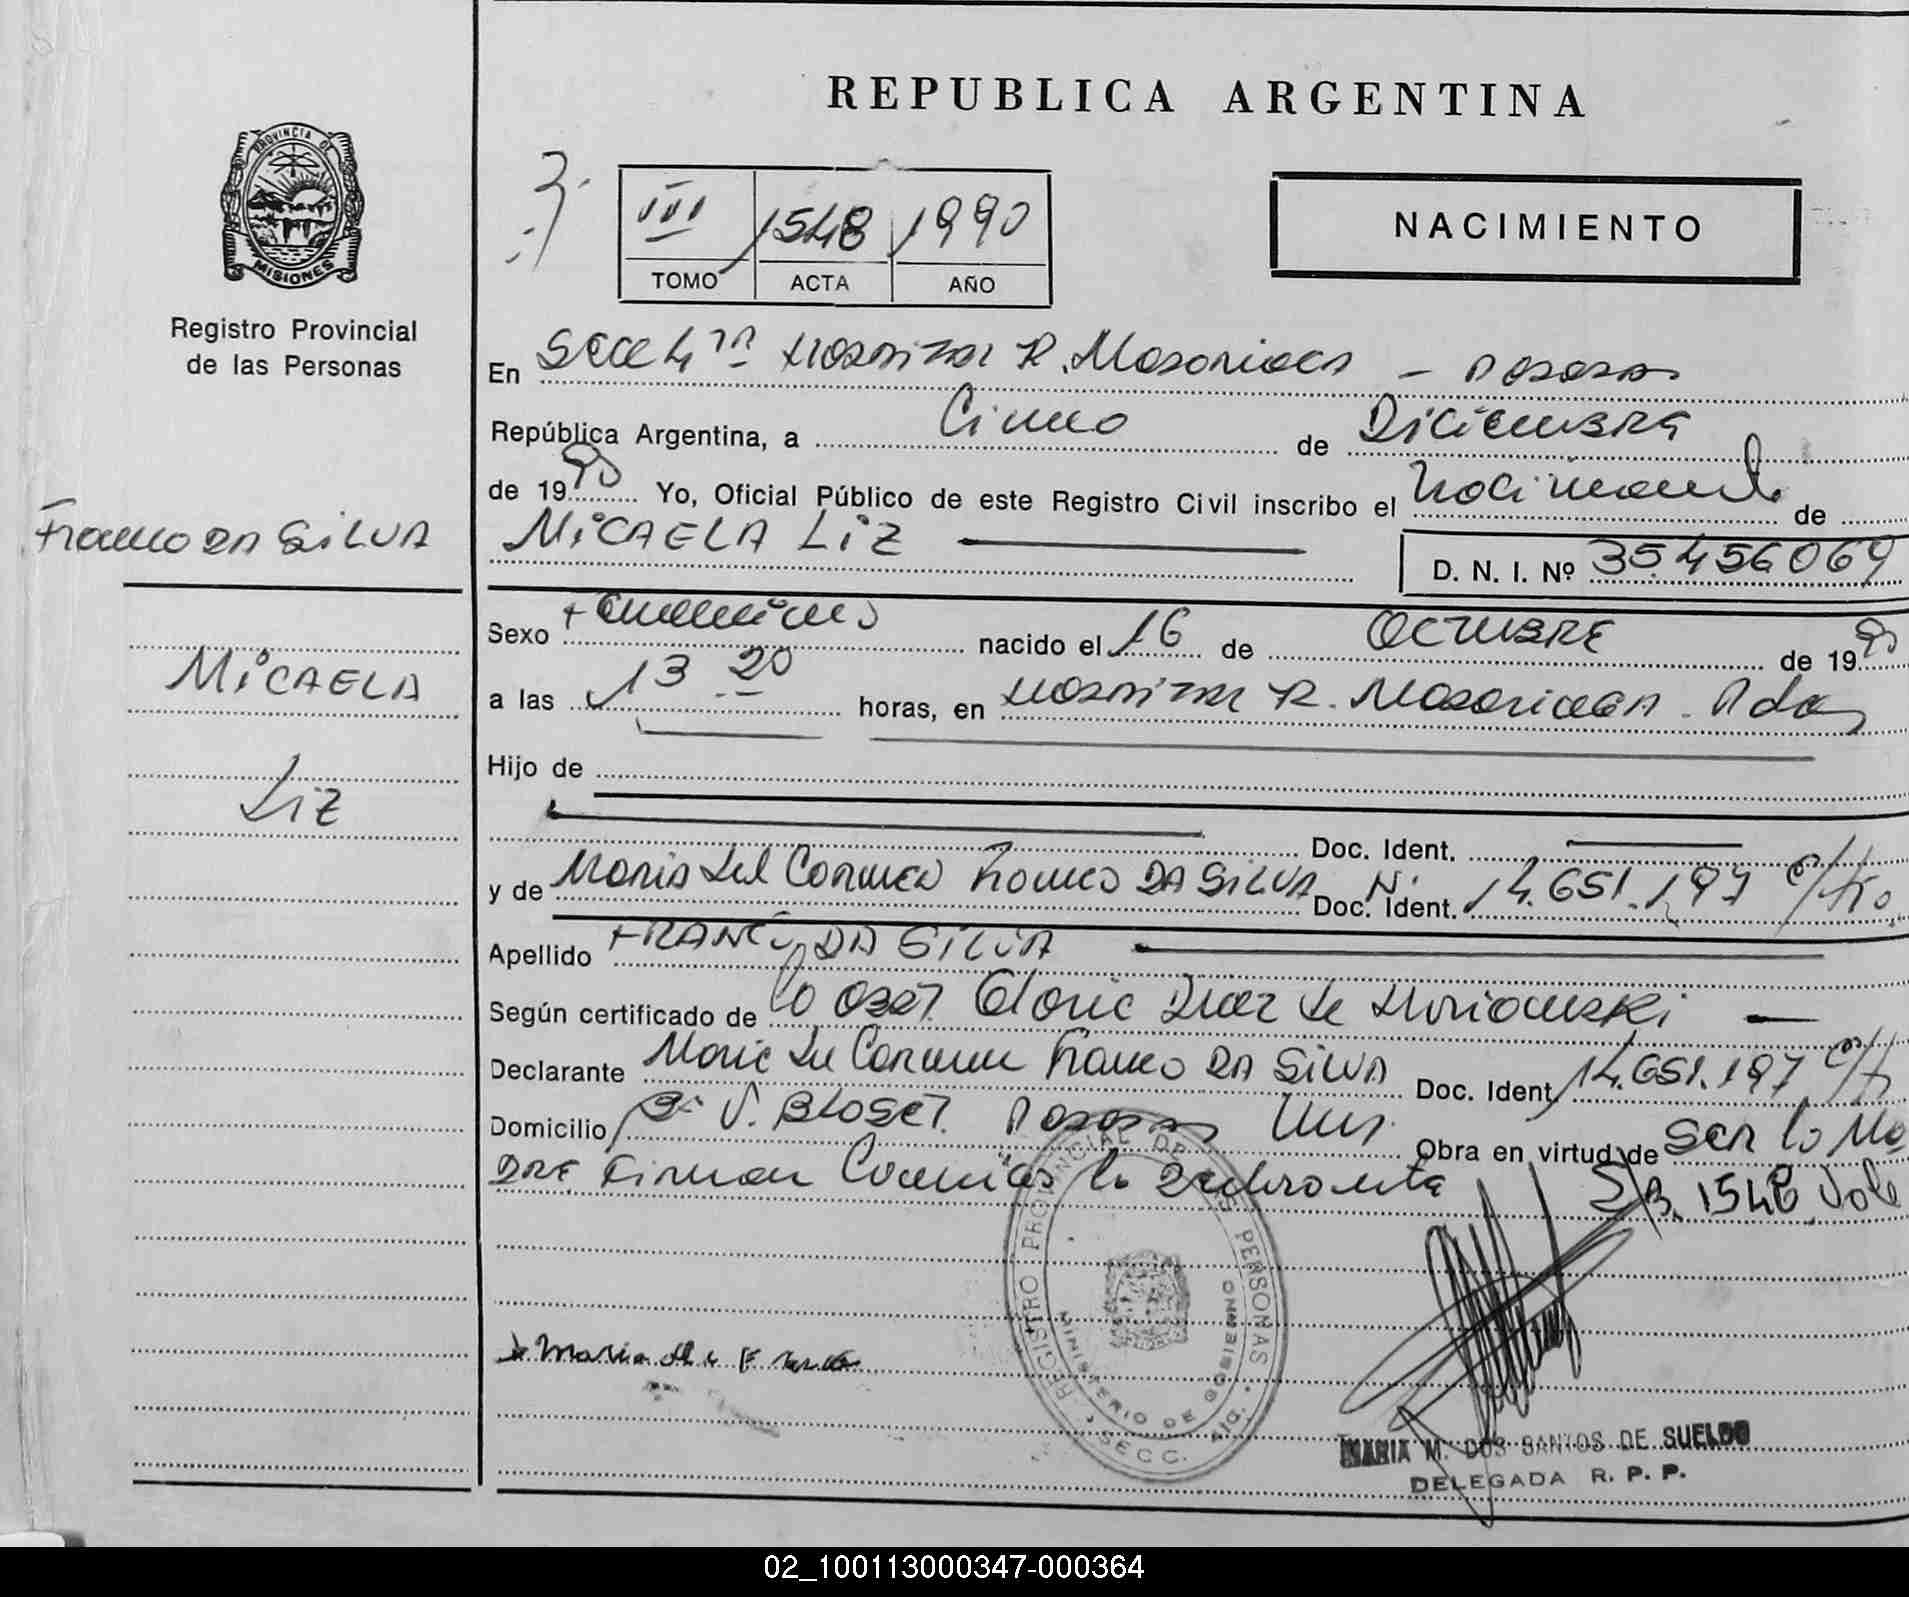 REPUBLICA ARGENTINA
PROVINCIA DE
MISIONES
Registro Provincial
de las Personas
III 1548 1990
TOMO ACTA AÑO
NACIMIENTO
En Secc 4ta Hospital R. Madariaga - Posadas
República Argentina, a Cinco de Diciembre
de 1990 Yo, Oficial Público de este Registro Civil inscribo el Nacimiento de
Franco DA SILVA
MICAELA LIZ
D. N. I. Nº 35.456069
MICAELA
LIZ
Sexo Femenino nacido el 16 de OCTUBRE de 1990
a las 13 20 horas, en Hospital R. Madariaga. Pdas
Hijo de
Doc. Ident.
y de Maria del Carmen Franco DA SILVA Doc. Ident. N. 14.651.197
Apellido FRANCO DA SILVA
Según certificado de la Obst. Gloria Diaz de
Declarante Maria del Carmen Franco DA SILVA Doc. Ident. 14.651.197
Domicilio Bº V. BLOSET. Posadas Mnes. Obra en virtud de Ser la Ma
DRE Firman Conmigo la Declarante S/B. 1548 Vale
Maria del C Franco
REGISTRO PROVINCIAL DE LAS PERSONAS
MINISTERIO DE GOBIERNO
SECC. 4ta.
MARIA M. DOS SANTOS DE SUELDO
DELEGADA R. P. P.
02_100113000347-000364